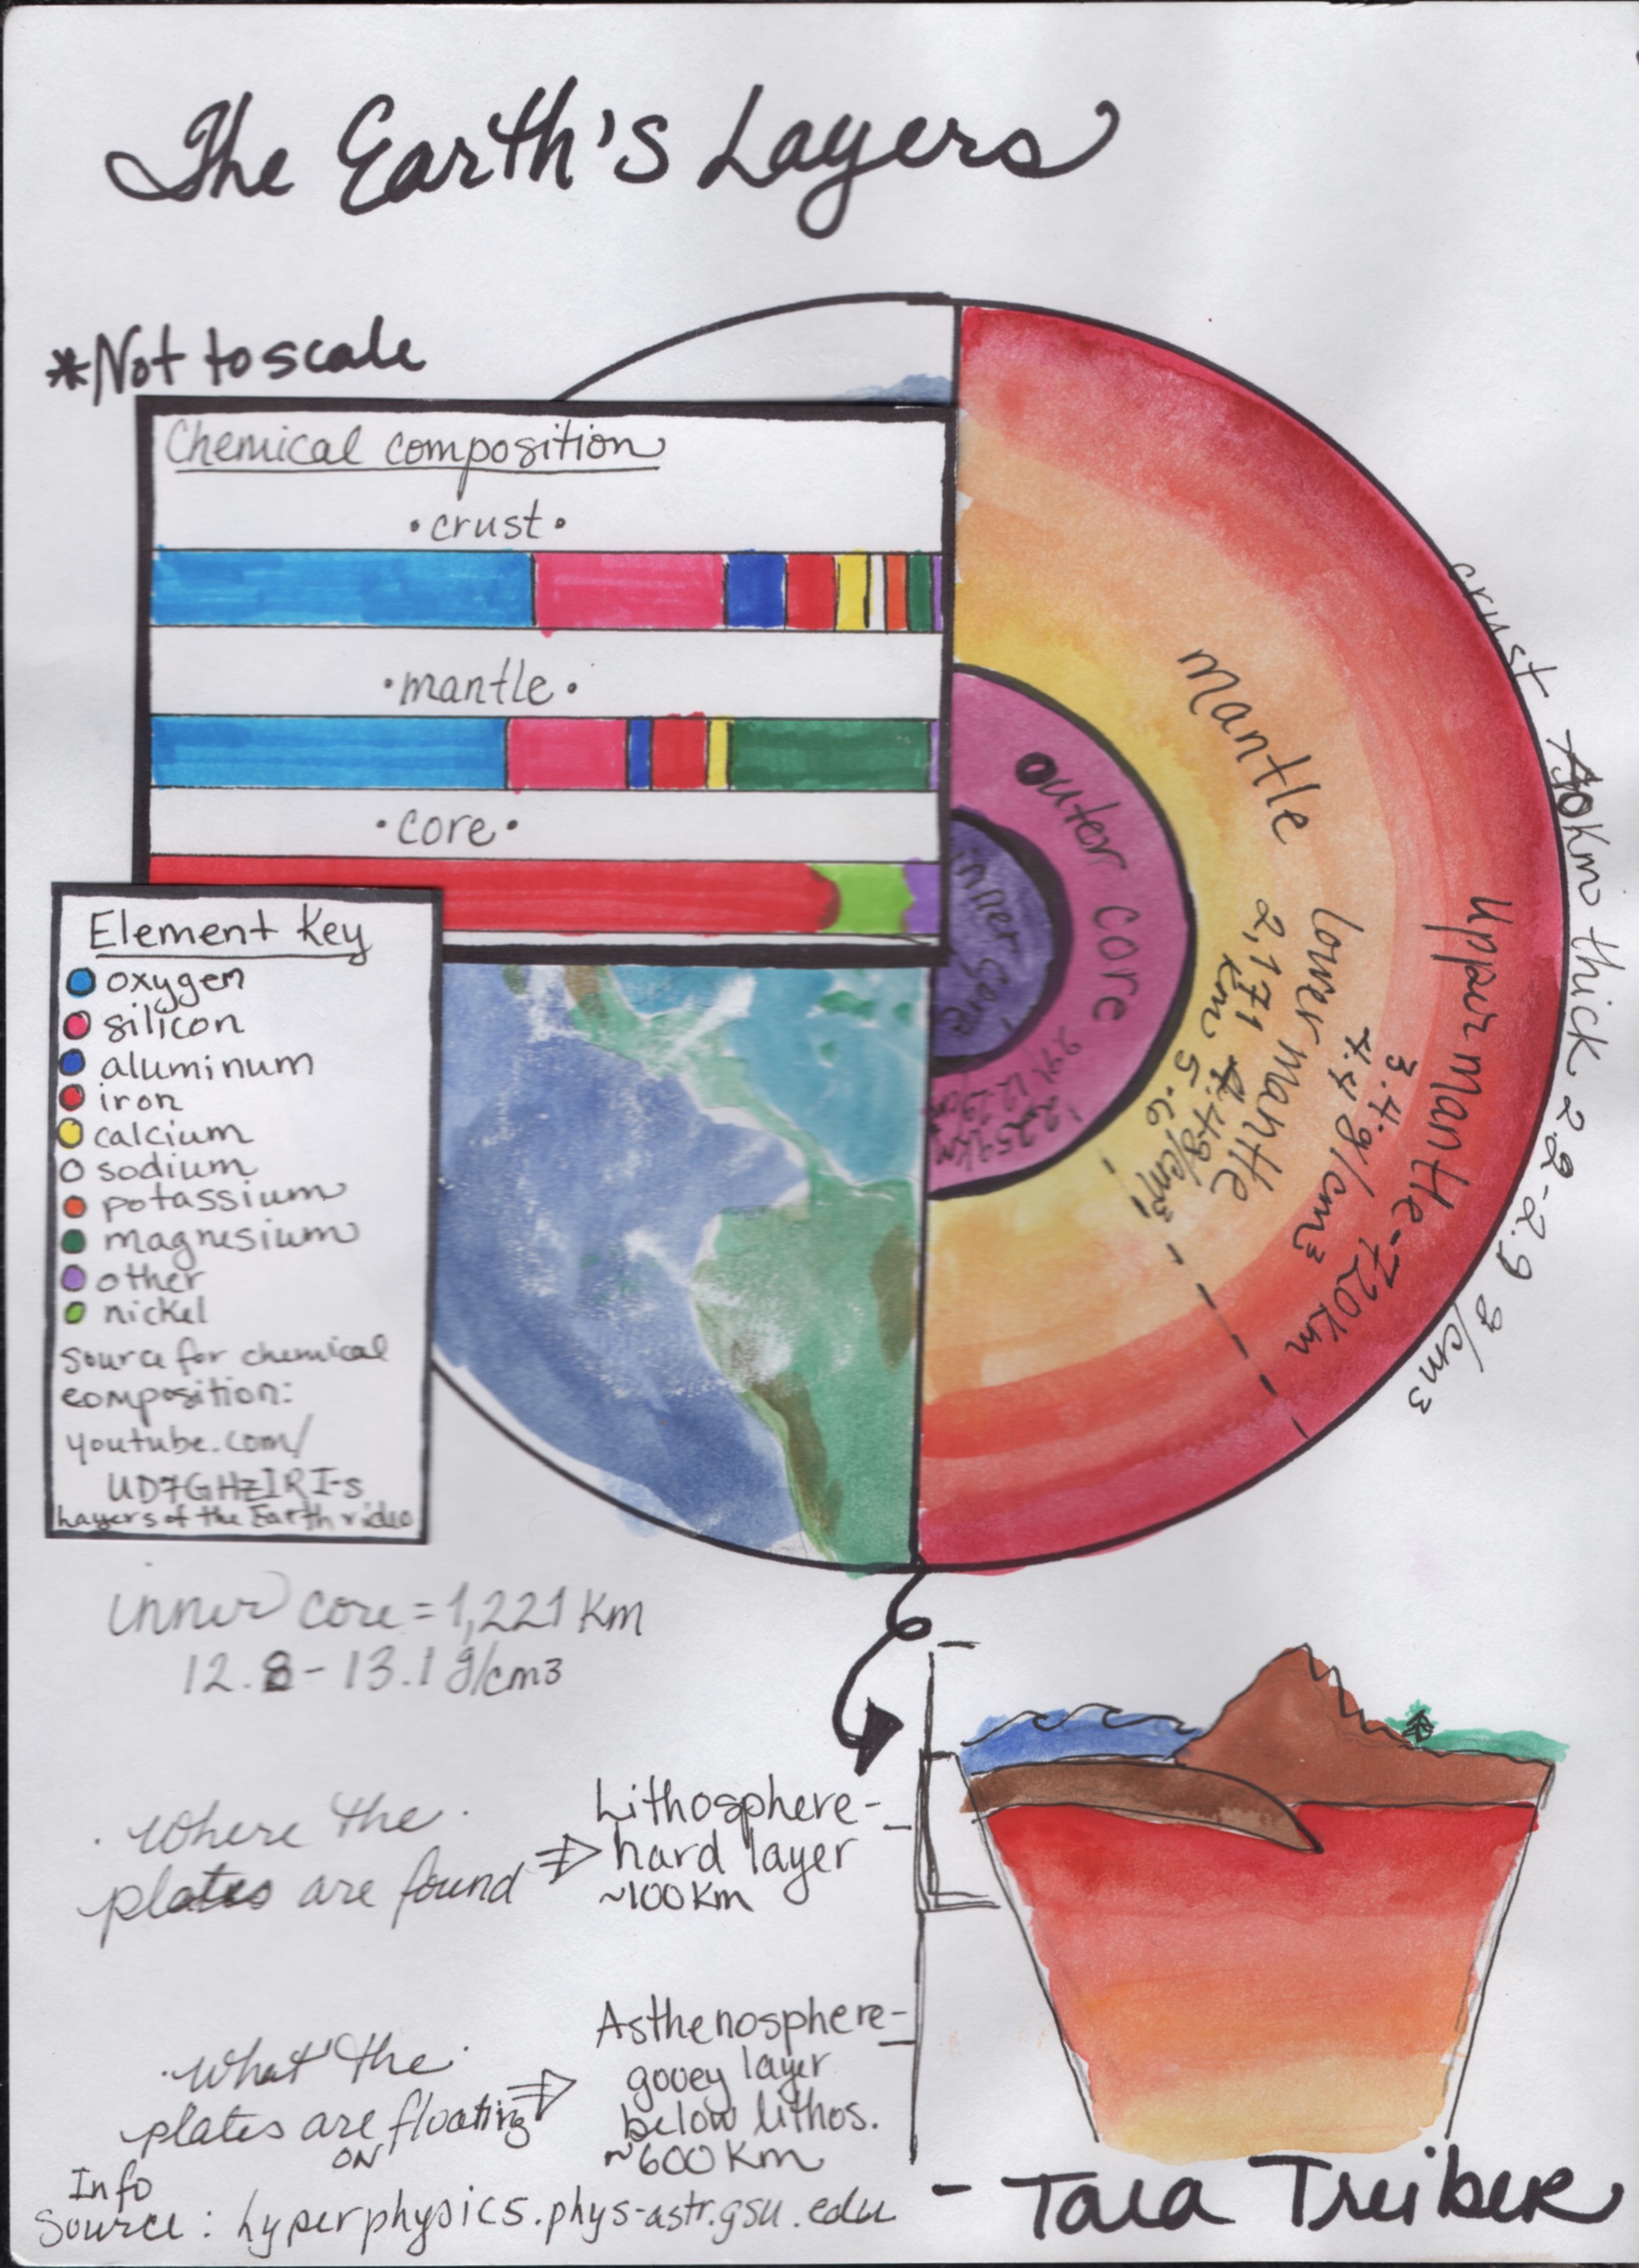 The Earth's Layers
*Not to scale
Chemical composition
• crust •
• mantle •
• core •
Element Key
oxygen
silicon
aluminum
iron
calcium
sodium
potassium
magnesium
other
nickel
Source for chemical
composition:
youtube.com/
UD7GHzIRI-s
Layers of the Earth video
inner core
outer core
2,259 km
mantle
lower mantle
2,171 km
4.4 g/cm3
5.6
Upper mantle - 720km
3.4 g/cm3
4.4
crust
40km thick 2.2-2.9 g/cm3
inner core = 1,221 Km
12.8 - 13.1 g/cm3
. Where the .
plates are found ⇒
Lithosphere-
hard layer
~100km
. What the .
plates are floating ⇒
on
Asthenosphere-
gooey layer
below lithos.
~600km
Info
Source: hyperphysics.phys-astr.gsu.edu
- Tara Treiber